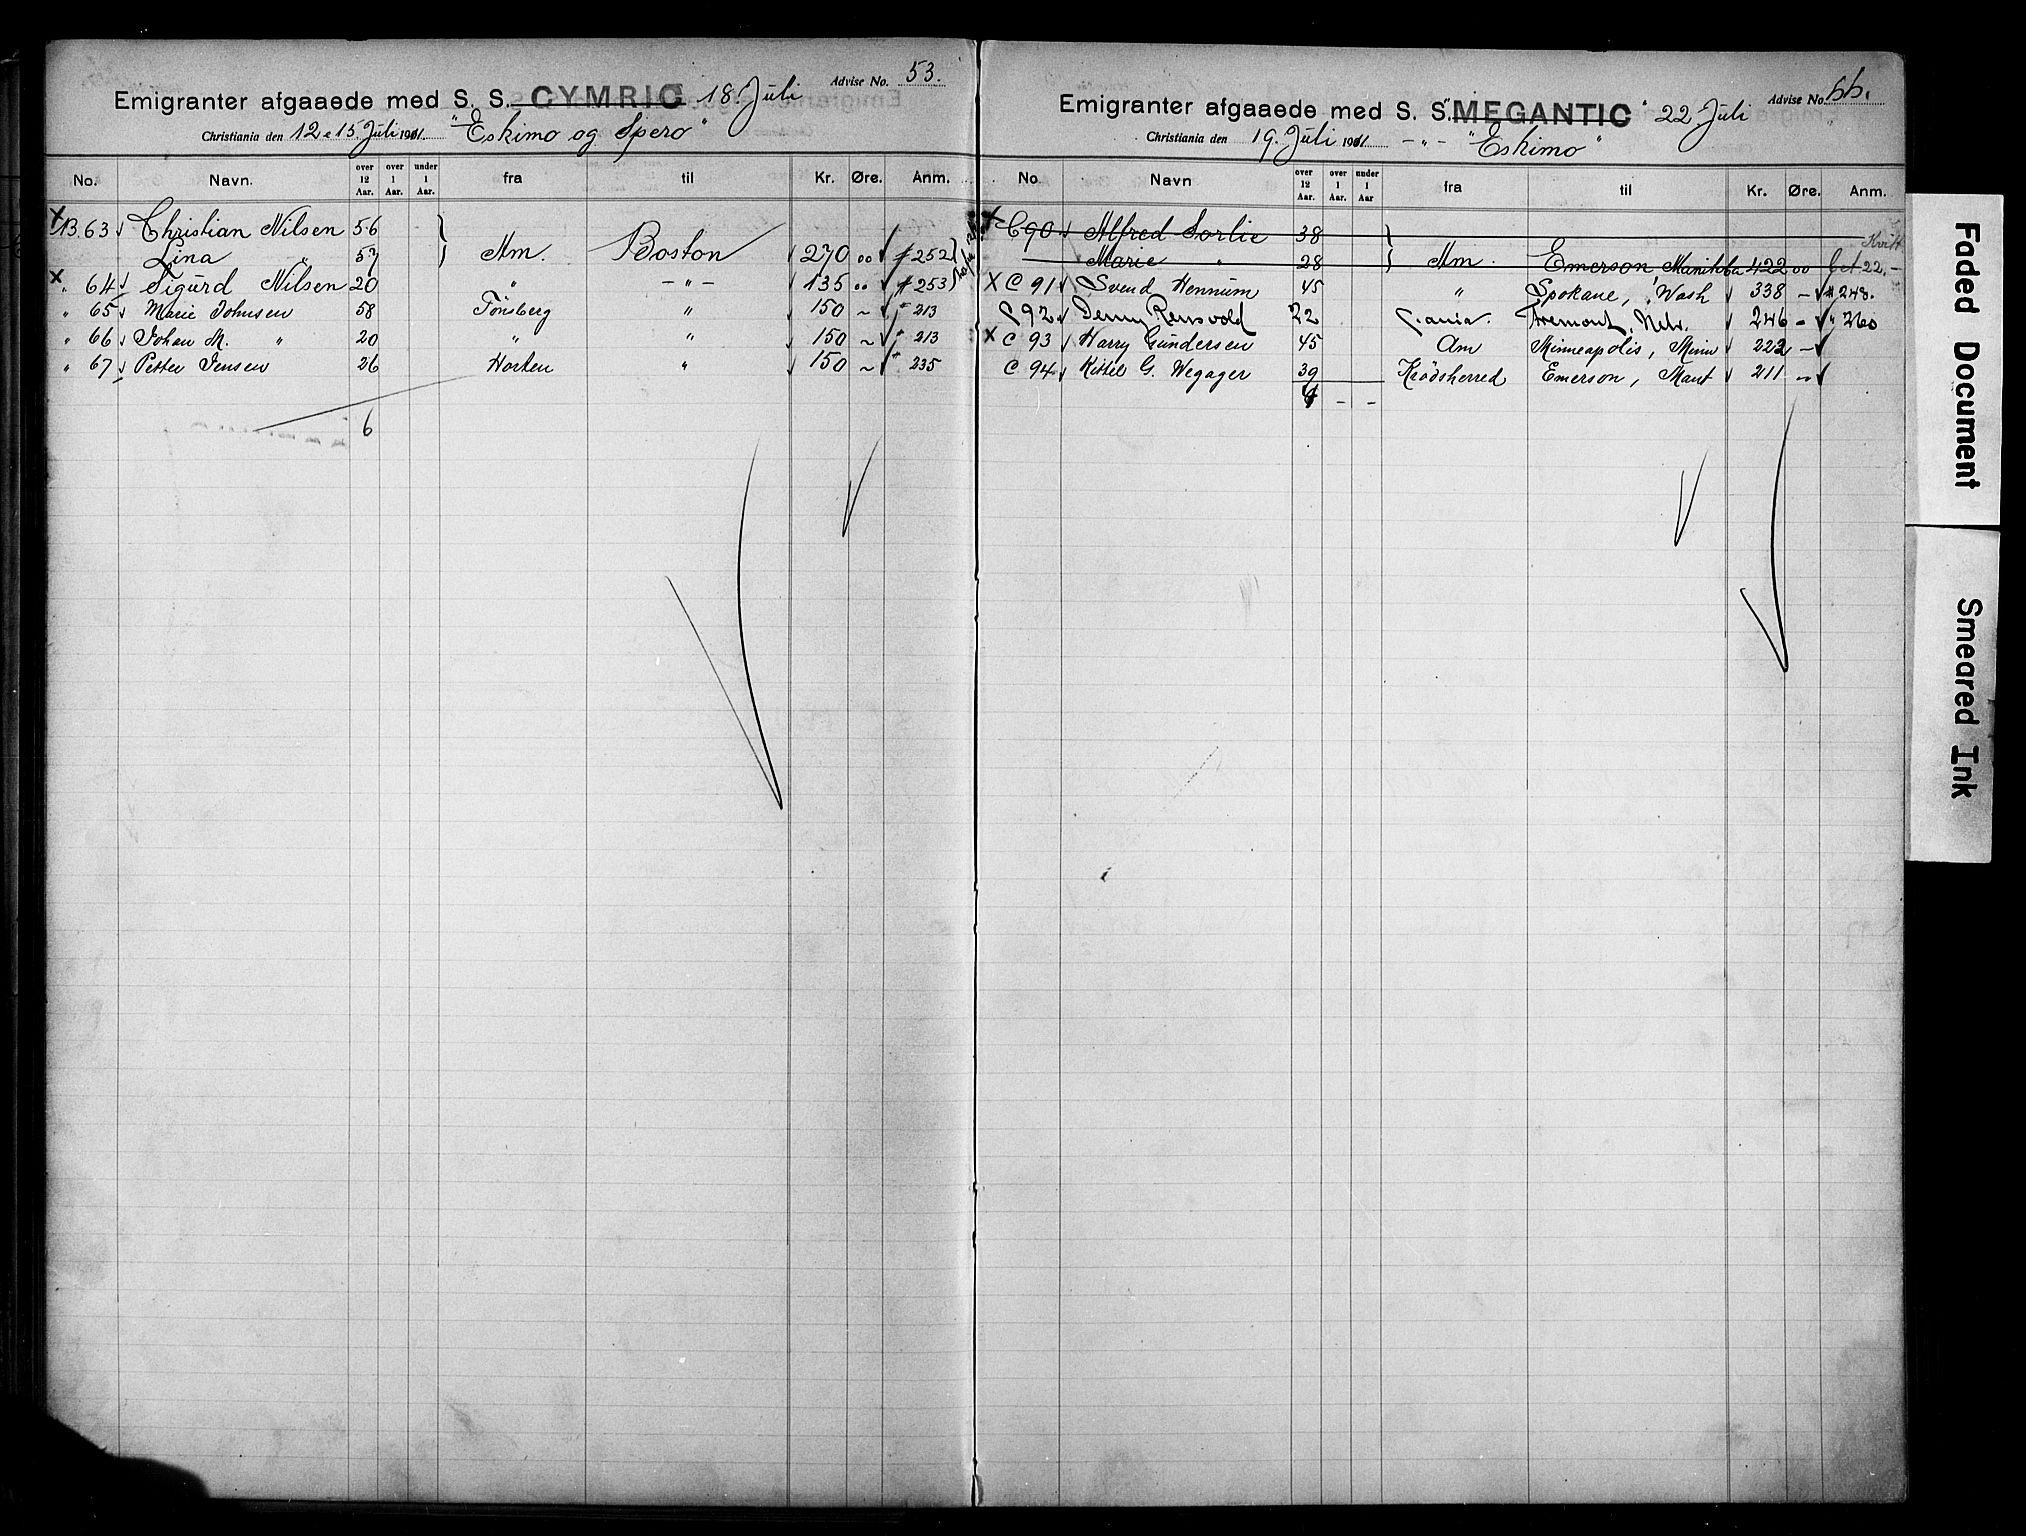 Advise No. 53.
Emigranter afgaaede med S. S. CYMRIC 18 Juli
Christiania den 12 & 15 Juli 1911. "Eskimo og Spero"
No. Navn. over 12 Aar. over 1 Aar. under 1 Aar. fra til Kr. Øre. Anm.
X B 63 Christian Nilsen 56
Lina " 57 } Am. Boston 270 00 # 252
X " 64 Sigurd Nilsen 20 " - " - 135 00 # 253
" 65 Marie Johnsen 58 Tönsberg " 150 - " 213
" 66 Johan M. " 20 " " 150 - " 213
" 67 Petter Jensen 26 Horten " 150 - " 235
6
Advise No. 66.
Emigranter afgaaede med S. S. "MEGANTIC" 22 Juli
Christiania den 19. Juli 1911 - " - "Eskimo"
No. Navn over 12 Aar. over 1 Aar. under 1 Aar fra til Kr. Øre. Anm.
X C 90 Alfred Sorlie 38
Marie " 28 } Am. Emerson Manitoba 422 00 22.-
X C 91 Svend Hennum 45 " Spokane, Wash 338 - # 248.
C 92 Rensvold 22 Fremont, Nebr. 246 - " 260
X C 93 Harry Gundersen 45 Am Minneapolis, Minn 222 -
C 94 Kittel G. Wegager 39 Krödsherred Emerson, Mant 211 -
- -
Faded Document
Smeared Ink